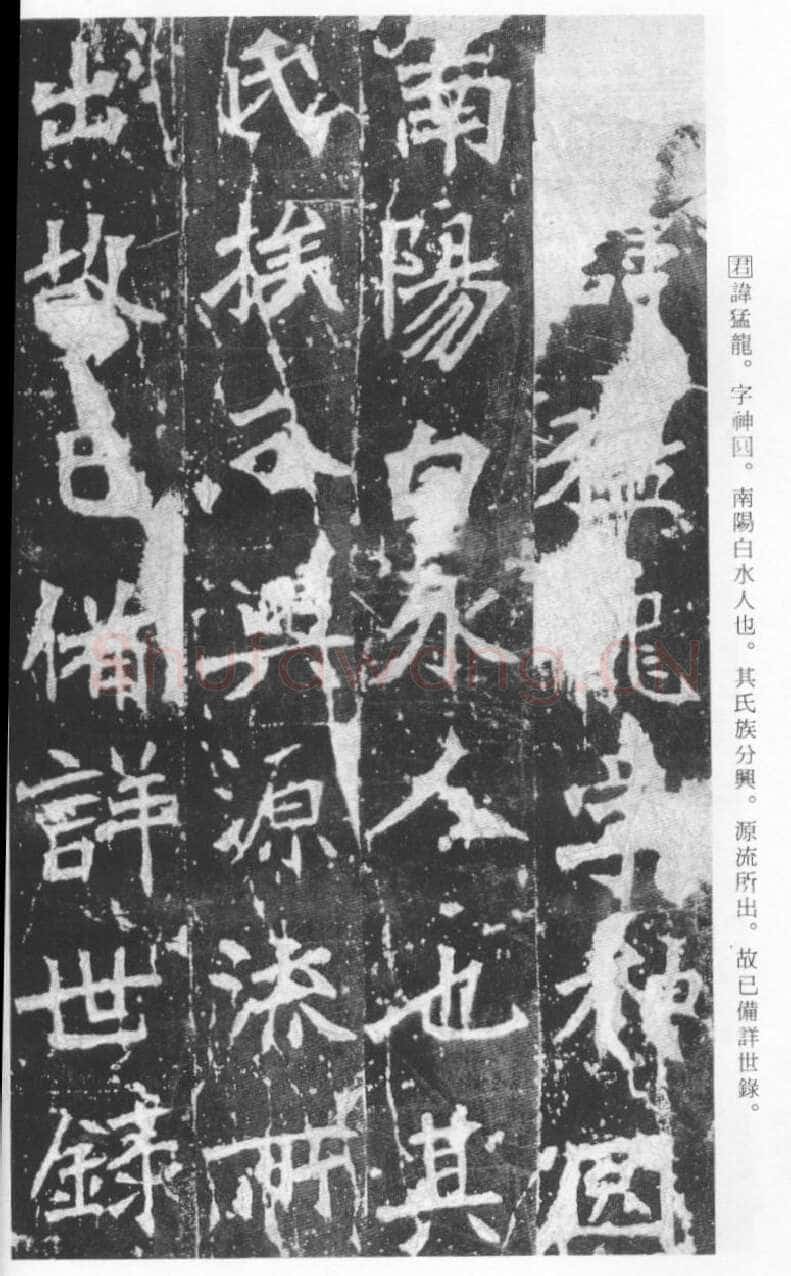 君諱猛龍。字神囧。南陽白水人也。其氏族分興。源流所出。故已備詳世錄。
諱猛龍字神囧
南陽白水人也其
氏族分興源流所
出故已備詳世錄
shufawang.CN